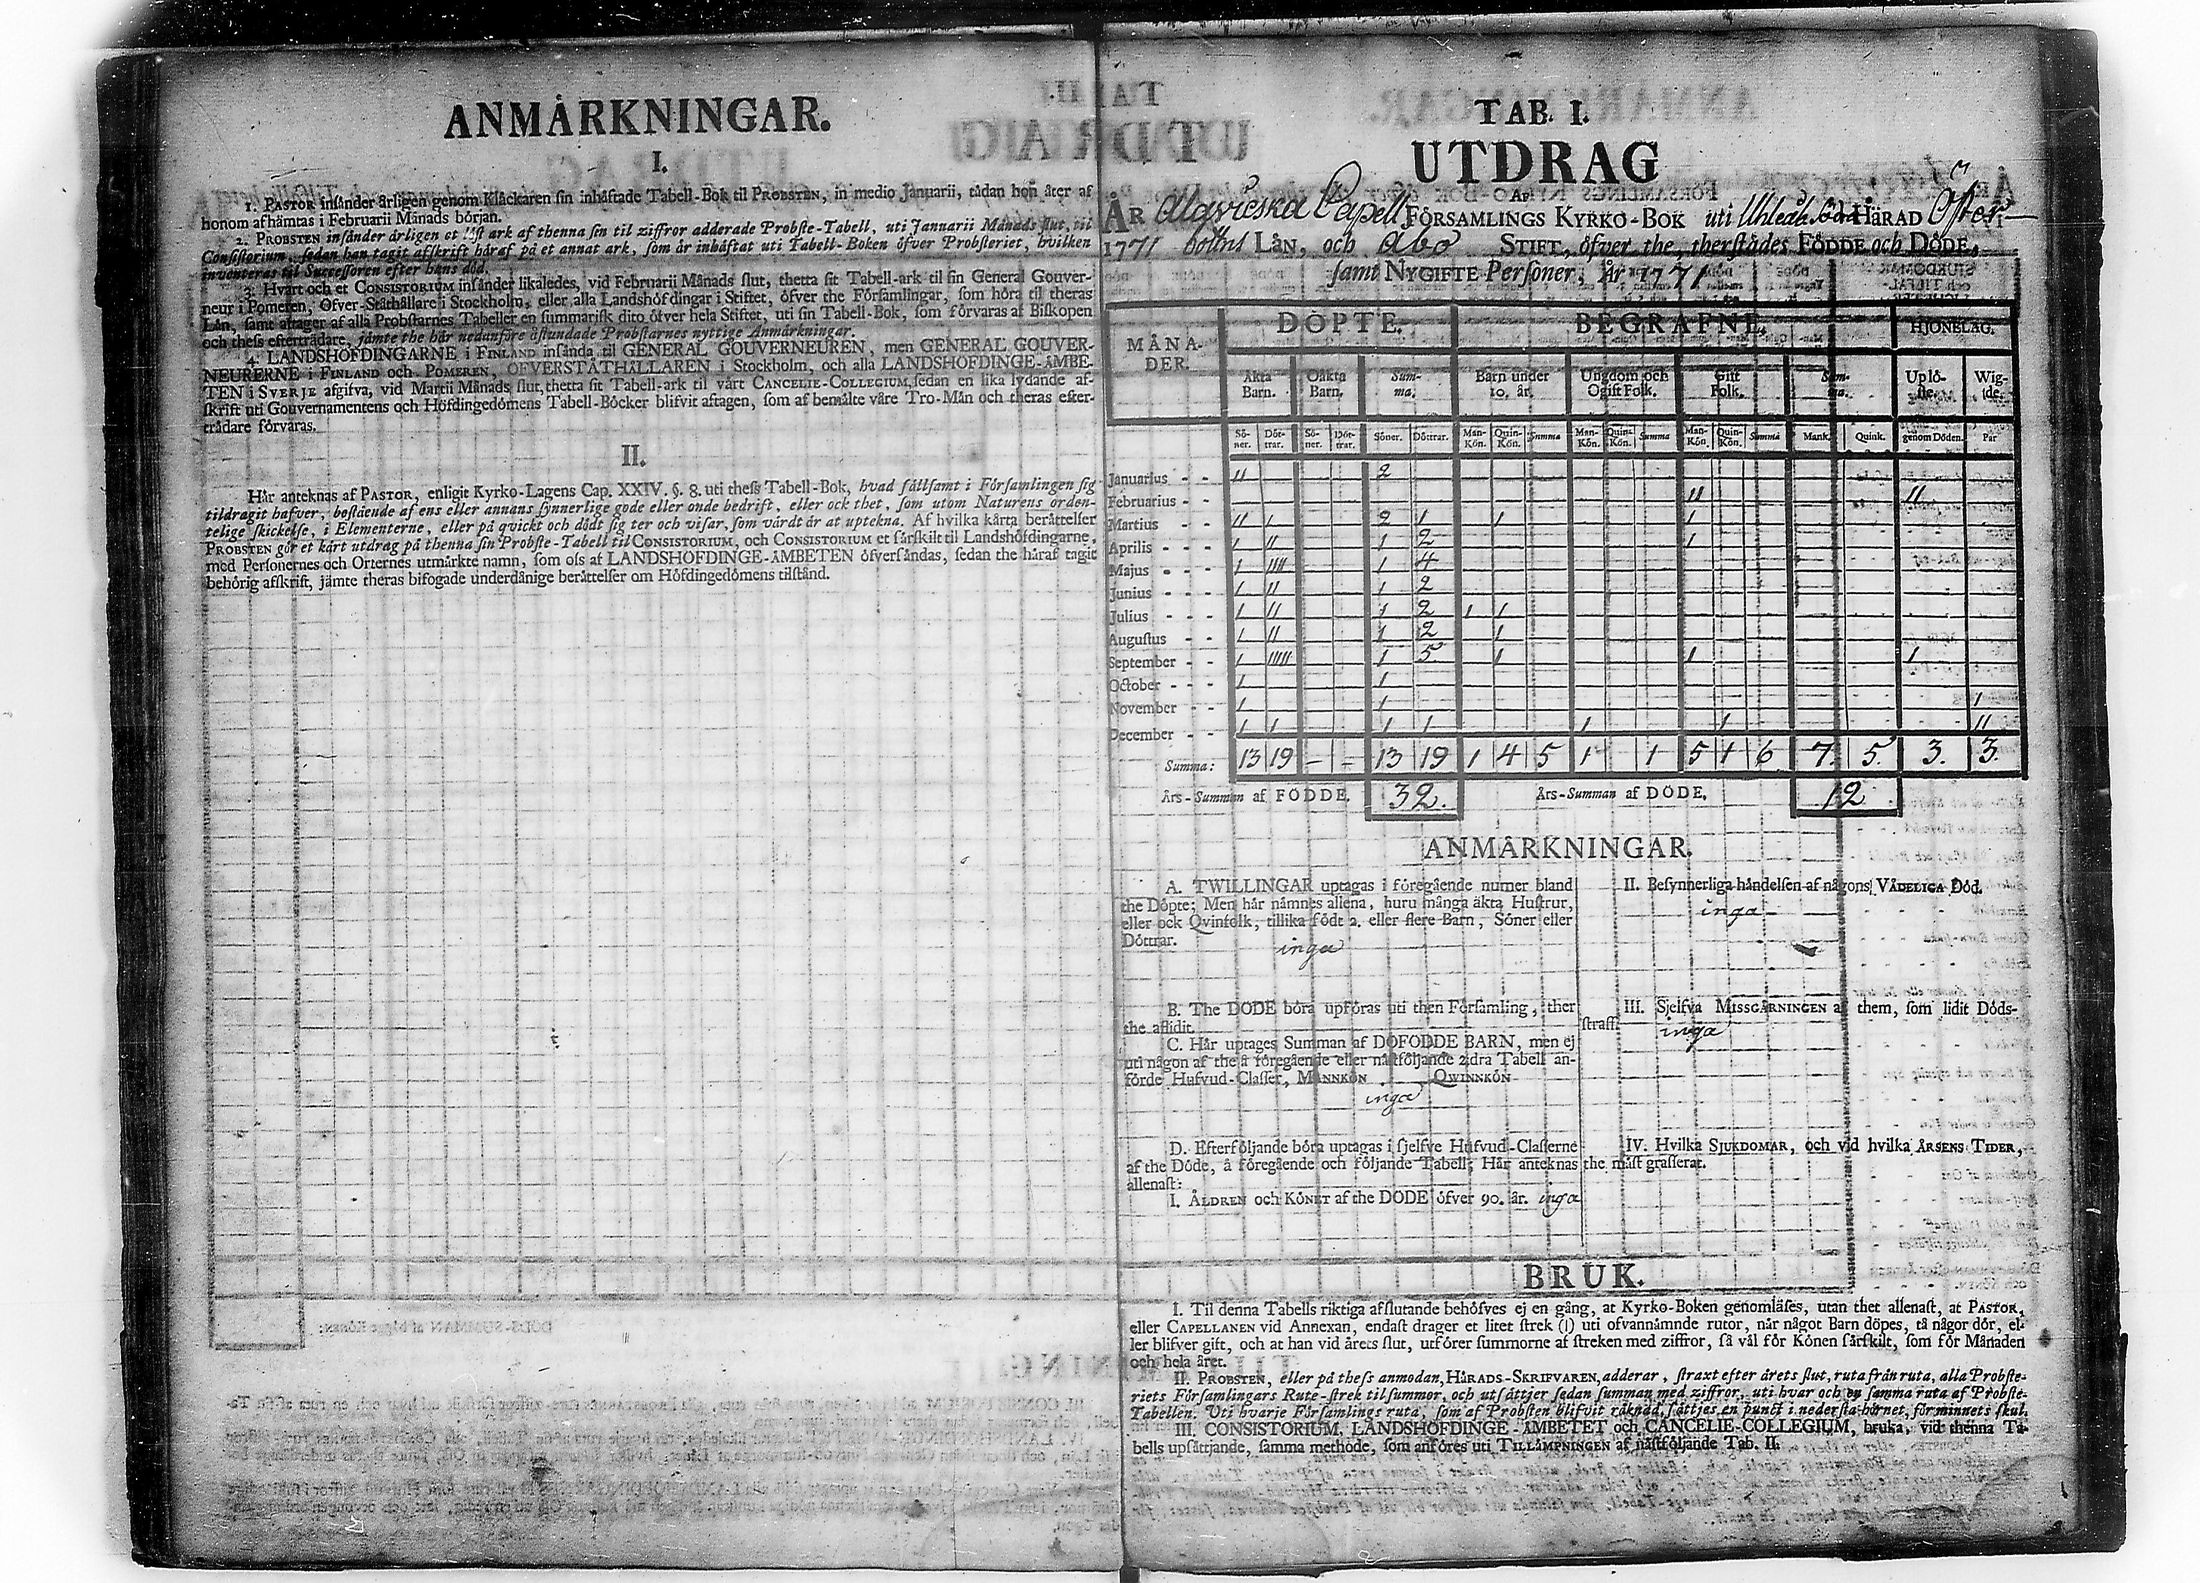 ANMÄRKNINGAR.
I.
1. PASTOR insänder ärligen genom Klåckaren sin inhäftade Tabell-Bok til PROBSTEN, in medio Januarii, tådan hon åter af
honom afhämtas i Februarii Månads början.
2. PROBSTEN insänder årligen et löst ark af thenna sin til ziffror adderade Probste-Tabell, uti Januarii Månads slut, til
Consistorium, sedan han tagit afskrift häraf på et annat ark, som är inhäftat uti Tabell-Boken öfver Probsteriet, hvilken
inventeras til Successoren efter hans död.
3. Hvart och et CONSISTORIUM insänder likaledes, vid Februarii Månads slut, thetta sit Tabell-ark til sin General Gouver-
neur i Pomeren, Öfver-Ståthållare i Stockholm, eller alla Landshöfdingar i Stiftet, öfver the Församlingar, som höra til theras
Län, samt aftager af alla Probstarnes Tabeller en summarisk dito öfver hela Stiftet, uti sin Tabell-Bok, som förvaras af Biskopen
och thess efterträdare, jämte the här nedanföre åstundade Probstarnes nyttige Anmärkningar.
4. LANDSHÖFDINGARNE i FINLAND insända til GENERAL GOUVERNEUREN, men GENERAL GOUVER-
NEURERNE i FINLAND och POMEREN, ÖFVERSTÅTHÅLLAREN i Stockholm, och alla LANDSHÖFDINGE-ÄMBE-
TEN i SVERJE afgifva, vid Martii Månads slut, thetta sit Tabell-ark til vårt CANCELIE-COLLEGIUM, sedan en lika lydande af-
skrift uti Gouvernamentens och Höfdingedömens Tabell-Böcker blifvit aftagen, som af bemälte våre Tro-Män och theras efter-
trädare förvaras.
II.
Här anteknas af PASTOR, enligit Kyrko-Lagens Cap. XXIV. §. 8. uti thess Tabell-Bok, hvad sällsamt i Församlingen sig
tildragit hafver, bestående af ens eller annans synnerlige gode eller onde bedrift, eller ock thet, som utom Naturens orden-
telige skickelse, i Elementerne, eller på qvickt och dödt sig ter och visar, som värdt är at uptekna. Af hvilka kårta berättelser
PROBSTEN gör et kårt utdrag på thenna sin Probste-Tabell til CONSISTORIUM, och CONSISTORIUM et särskilt til Landshöfdingarne,
med Personernes och Orternes utmärkte namn, som oss af LANDSHÖFDINGE-ÄMBETEN öfversändas, sedan the häraf tagit
behörig afskrift, jämte theras bifogade underdånige berättelser om Höfdingedömens tilstånd.
TAB. I.
UTDRAG
AF
ÅR Alavieska Capell FÖRSAMLINGS KYRKO-BOK uti Uhleåb. Södr. HÄRAD Öster-
1771 bottns LÄN, och Åbo STIFT, öfver the, therstädes FÖDDE och DÖDE,
samt NYGIFTE Personer, År 1771
MÅNA-
DER. DÖPTE. BEGRAFNE. HJONELAG.
Äkta Barn. Oäkta Barn. Sum-ma. Barn under 10. år. Ungdom och Ogift Folk. Gift Folk. Sum-ma. Uplö-ste. Wig-de.
Sö-ner. Döt-trar. Sö-ner. Döt-trar. Söner. Döttrar. Man-Kön. Quin-Kön. Summa Man-Kön. Quin-Kön. Summa Man-Kön. Quin-Kön. Summa Mank. Quink. genom Döden. Par
Januarius - - II 2
Februarius - - II II
Martius - - II I 2 1 I I
Aprilis - - - I II 1 2 I
Majus - - - I IIII 1 4
Junius - - - I II 1 2
Julius - - - I II 1 2 I I
Augustus - - - I II 1 2 I
September - - I IIIII 1 5 I I I
October - - - I 1
November - - I 1 I
December - - I I 1 1 I I II
Summa: 13 19 - = 13 19 1 4 5 1 1 5 1 6 7. 5. 3. 3.
Års-Summan af FÖDDE. 32. Års-Summan af DÖDE. 12
ANMÄRKNINGAR.
A. TWILLINGAR uptagas i föregående numer bland
the Döpte; Men här nämnes allena, huru många äkta Hustrur,
eller ock Qvinfolk, tillika födt 2. eller flere Barn, Söner eller
Döttrar.
inga
B. The DÖDE böra upföras uti then Församling, ther
the aflidit.
C. Här uptages Summan af DÖFÖDDE BARN, men ej
uti någon af the å föregående eller nästföljande 2dra Tabell an-
förde Hufvud-Classer, MANNKÖN QWINNKÖN
inga
D. Efterföljande böra uptagas i sjelfve Hufvud-Classerne
af the Döde, å föregående och följande Tabell; Här anteknas
allenast:
I. ÅLDREN och KÖNET af the DÖDE öfver 90. år. inga
II. Besynnerliga händelsen af någons VÅDELIGA DÖD.
inga
III. Sjelfva MISSGÄRNINGEN af them, som lidit Döds-
straff.
inga
IV. Hvilka SJUKDOMAR, och vid hvilka ÅRSENS TIDER,
the mäst grasserat.
BRUK.
I. Til denna Tabells riktiga afslutande behöfves ej en gång, at Kyrko-Boken genomläses, utan thet allenast, at PASTOR,
eller CAPELLANEN vid Annexan, endast drager et litet strek (|) uti ofvannämnde rutor, när något Barn döpes, tå någor dör, el-
ler blifver gift, och at han vid årets slut, utförer summorne af streken med ziffror, så väl för Könen särskilt, som för Månaden
och hela året.
II. PROBSTEN, eller på thess anmodan, HÄRADS-SKRIFVAREN, adderar, straxt efter årets slut, ruta från ruta, alla Probste-
riets Församlingars Rute-strek til summor, och utsättjer sedan summan med ziffror, uti hvar och en samma ruta af Probste-
Tabellen. Uti hvarje Församlings ruta, som af Probsten blifvit räknad, sättjes en punct i nedersta hörnet, för minnets skul.
III. CONSISTORIUM, LANDSHÖFDINGE-ÄMBETET och CANCELIE-COLLEGIUM, bruka, vid thenna Ta-
bells upsättjande, samma methode, som anföres uti TILLÄMPNINGEN af nästföljande Tab. II.